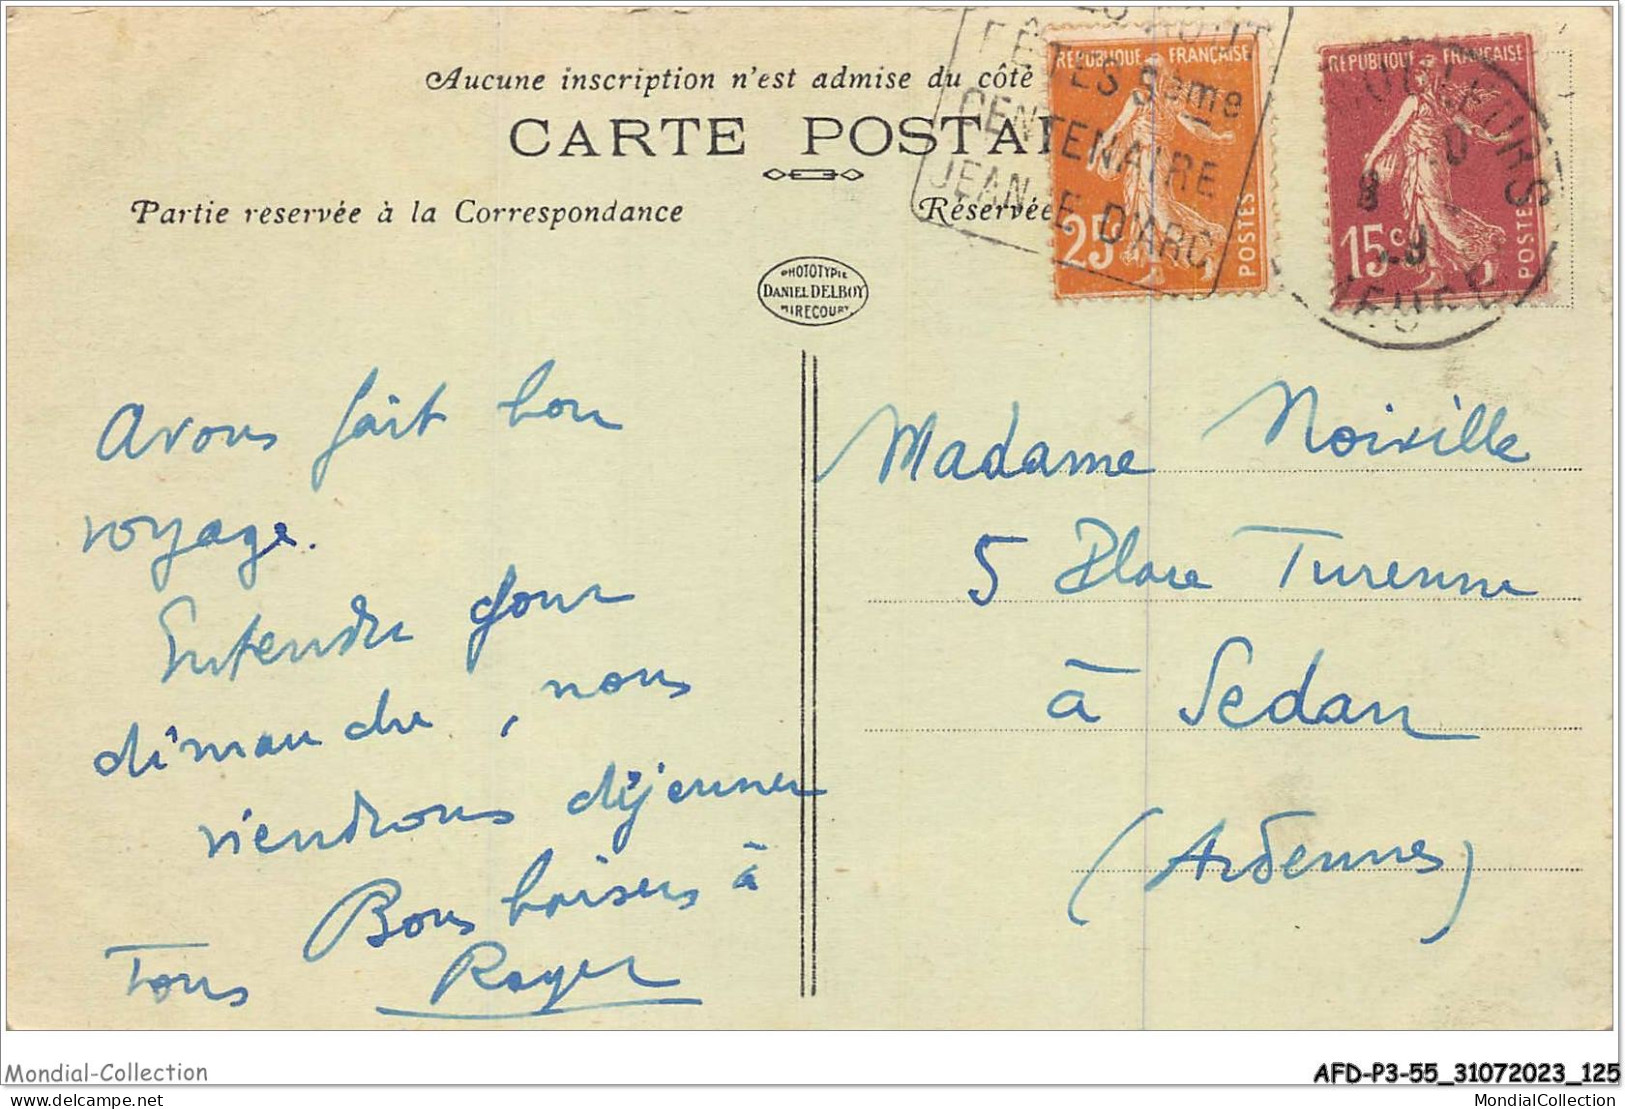 Aucune inscription n'est admise du côté
CARTE POSTAL
Partie reservée à la Correspondance
Réservée
FÊTES 5ème
CENTENAIRE
JEANNE D'ARC
REPUBLIQUE FRANÇAISE
25c POSTES
REPUBLIQUE FRANÇAISE
15c POSTES
PHOTOTYPIE
DANIEL DELBOY
MIRECOURT
Avons fait bon
voyage.
Entendu pour
dimanche, nous
viendrons déjeuner
Bons baisers à
Tous Roger
Madame Noiville
5 Place Turenne
à Sedan
(Ardennes)
Mondial-Collection
AFD-P3-55_31072023_125
delcampe.net
MondialCollection